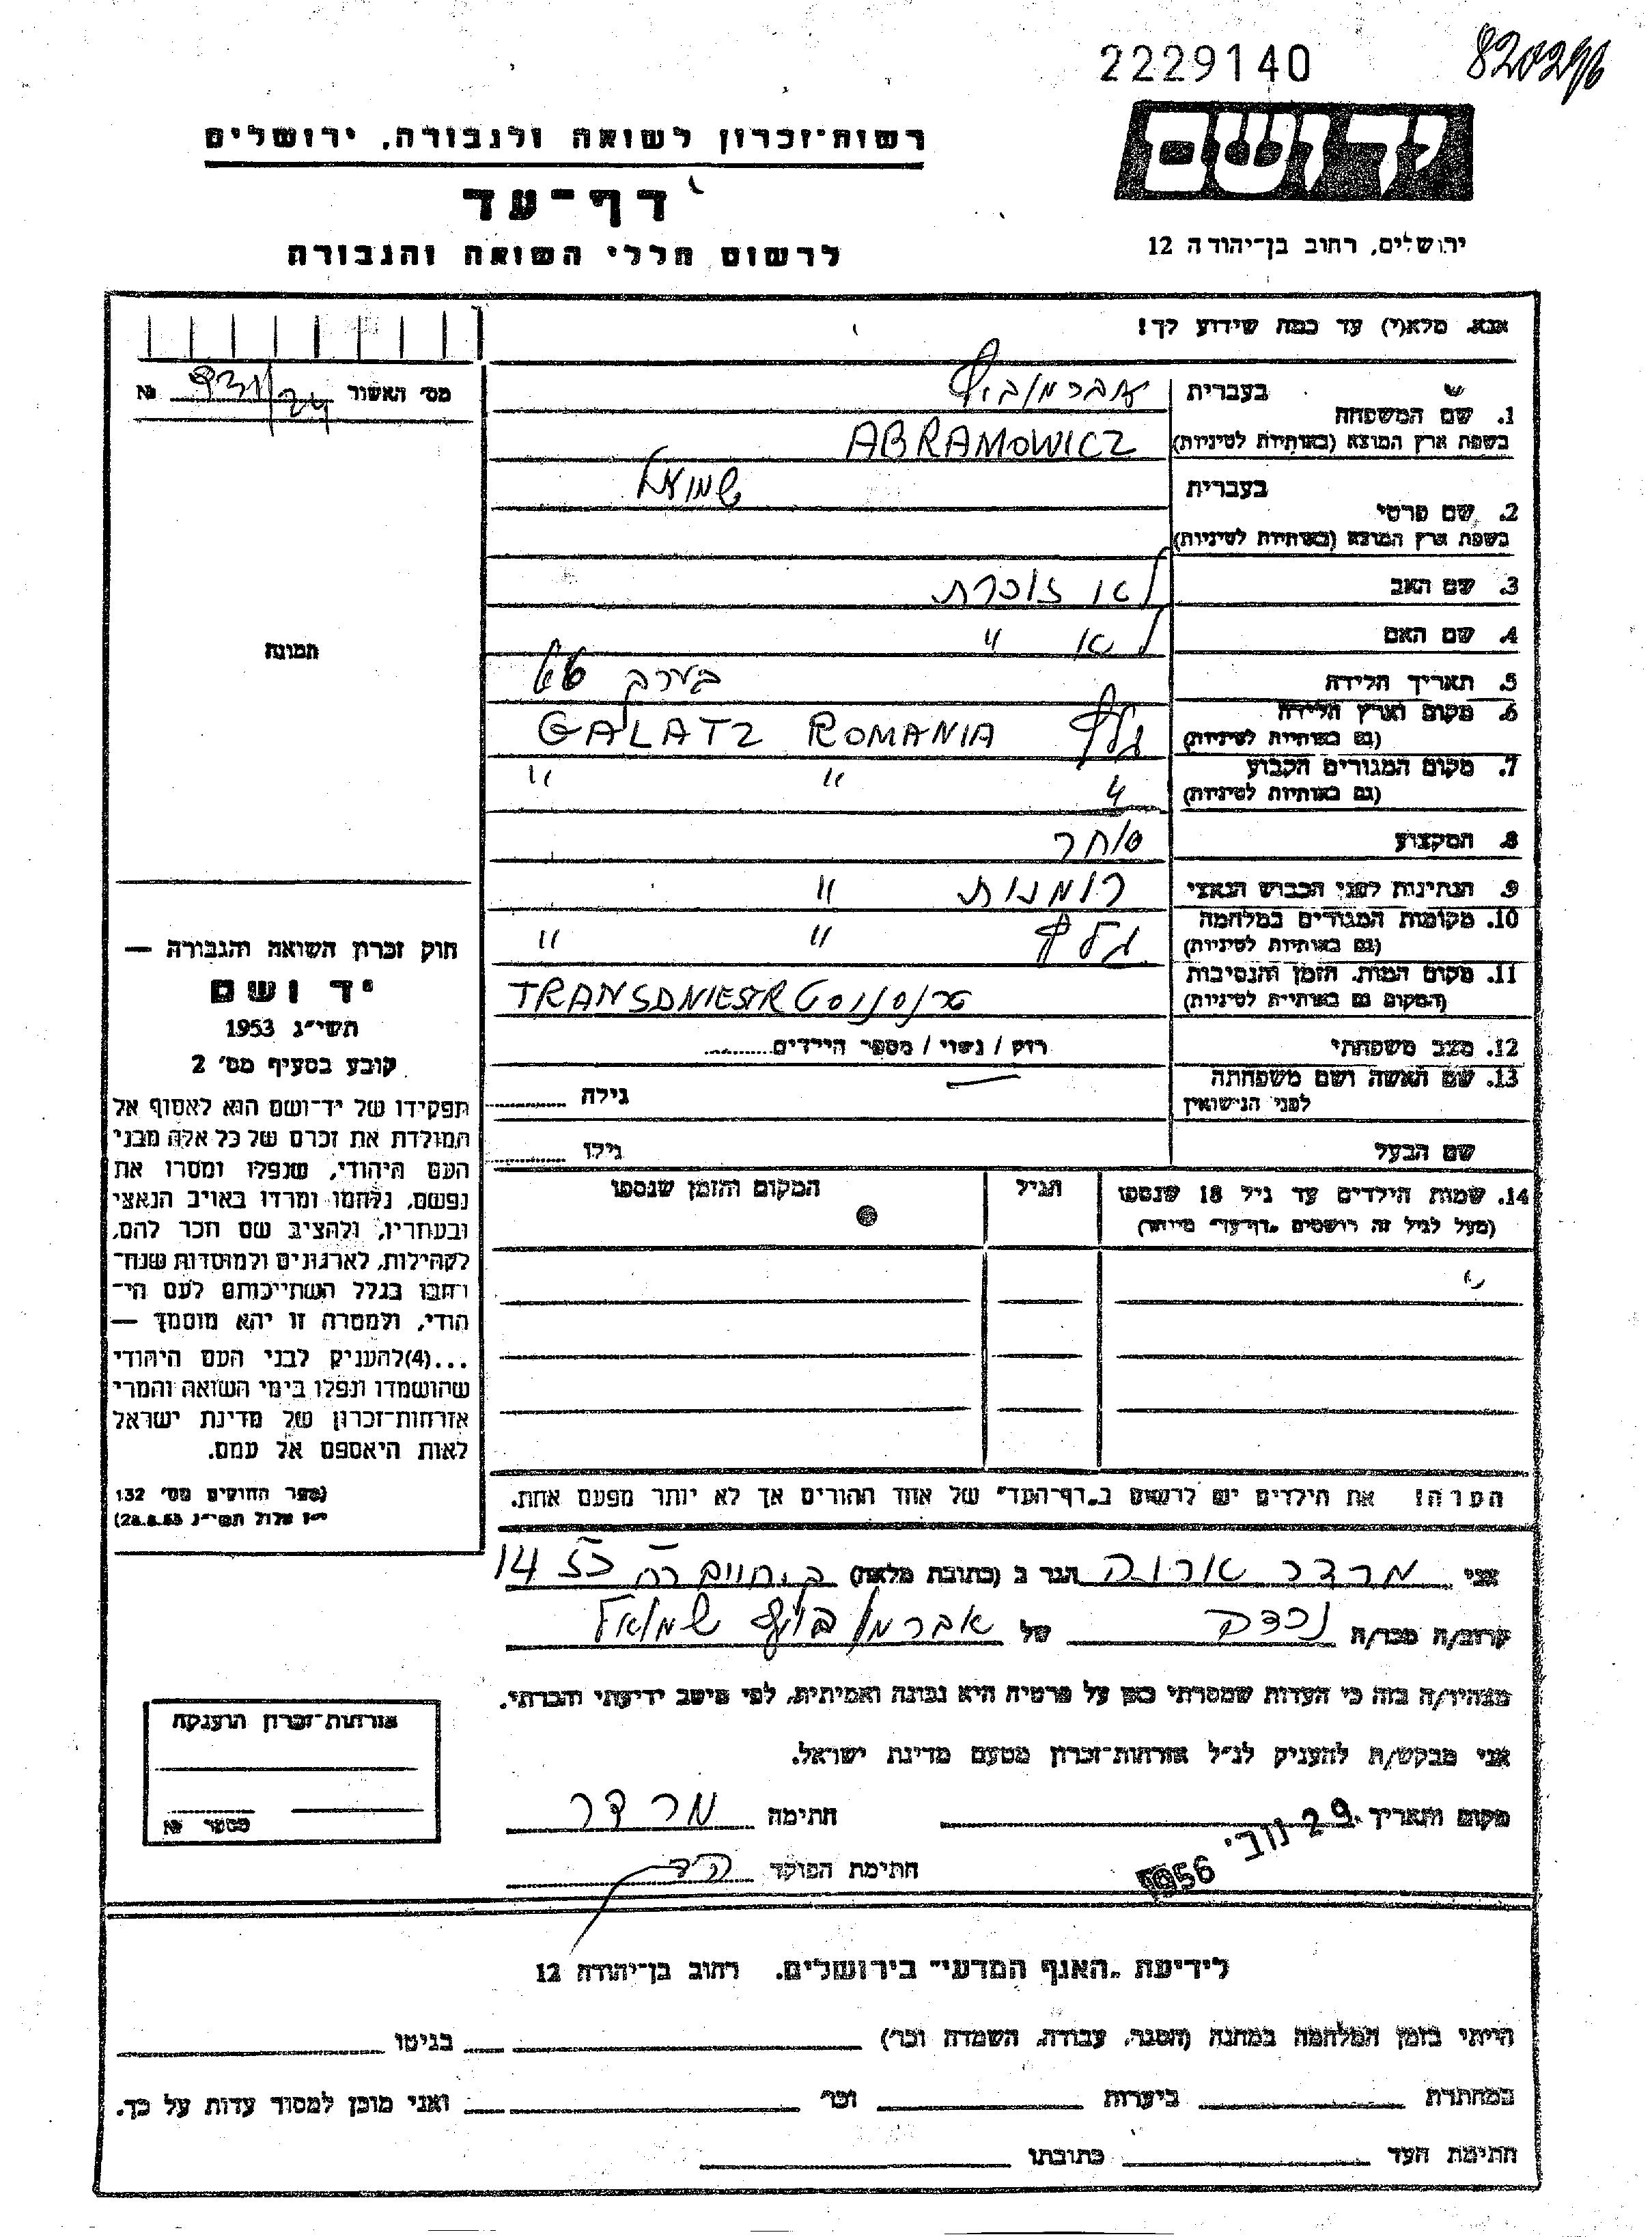 2229140
820296
יד ושם
ירושלים, רחוב בן־יהודה 12
רשות־זכרון לשואה ולגבורה, ירושלים
דף־עד
לרשום חללי השואה והגבורה
אנא, מלא(י) עד כמה שידוע לך!
1. שם המשפחה
בעברית אברמוביץ
בשפת ארץ המוצא (באותיות לטיניות) ABRAMOWICZ
2. שם פרטי
בעברית שמואל
בשפת ארץ המוצא (באותיות לטיניות)
3. שם האב לא זוכרת
4. שם האם לא "
5. תאריך הלידה בערך
6. מקום וארץ הלידה
(גם באותיות לטיניות) גלץ ROMANIA GALATZ
7. מקום המגורים הקבוע
(גם באותיות לטיניות) " " "
8. המקצוע סוחר
9. הנתינות לפני הכבוש הנאצי רומנות "
10. מקומות המגורים במלחמה
(גם באותיות לטיניות) גלץ " "
11. מקום המות, הזמן והנסיבות
(המקום גם באותיות לטיניות) TRANSDNIESTR
12. מצב משפחתי רווק / נשוי / מספר הילדים
13. שם האשה ושם משפחתה
לפני הנישואין גילה
שם הבעל גילו
14. שמות הילדים עד גיל 18 שנספו
(מעל לגיל זה רושמים „דף־עד" מיוחד)
הגיל
המקום והזמן שנספו
הערה! את הילדים יש לרשום ב„דף־העד" של אחד ההורים אך לא יותר מפעם אחת.
מס' האשור 931/24 №
תמונה
חוק זכרון השואה והגבורה —
יד ושם
תשי״ג 1953
קובע בסעיף מס' 2
תפקידו של יד־ושם הוא לאסוף אל
המולדת את זכרם של כל אלה מבני
העם היהודי, שנפלו ומסרו את
נפשם, נלחמו ומרדו באויב הנאצי
ובעוזריו, ולהציב שם וזכר להם,
לקהילות, לארגונים ולמוסדות שנח־
רבו בגלל השתייכותם לעם הי־
הודי, ולמטרה זו יהא מוסמך —
...(4)להעניק לבני העם היהודי
שהושמדו ונפלו בימי השואה והמרי
אזרחות־זכרון של מדינת ישראל
לאות היאספם אל עמם.
(ספר החוקים מס' 132
י״ז אלול תשי״ג 28.8.53)
אני מרדר הגר ב (כתובת מלאה) 14
קרוב/ה מכר/ה נכדה של אברמוביץ שמואל
מצהיר/ה בזה כי העדות שמסרתי כאן על פרטיה היא נכונה ואמיתית, לפי מיטב ידיעתי והכרתי.
אני מבקש/ת להעניק לנ״ל אזרחות־זכרון מטעם מדינת ישראל.
מקום ותאריך 29 נוב' 1956 חתימה מרדר
חתימת הפוקד
אזרחות־זכרון הוענקה
מספר №
לידיעת „האגף המדעי" בירושלים. רחוב בן־יהודה 12
הייתי בזמן המלחמה במחנה (הסגר, עבודה, השמדה וכו') בגיטו
במחתרת ביערות וכו' ואני מוכן למסור עדות על כך.
חתימת העד כתובתו